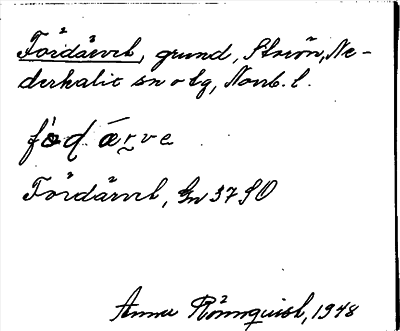 Fördärvet, grund, Storön, Ne-
derkalix sn o tg, Norrb. l.
Fördärvet, Gn 37 SO
Anna Rönnquist, 1948